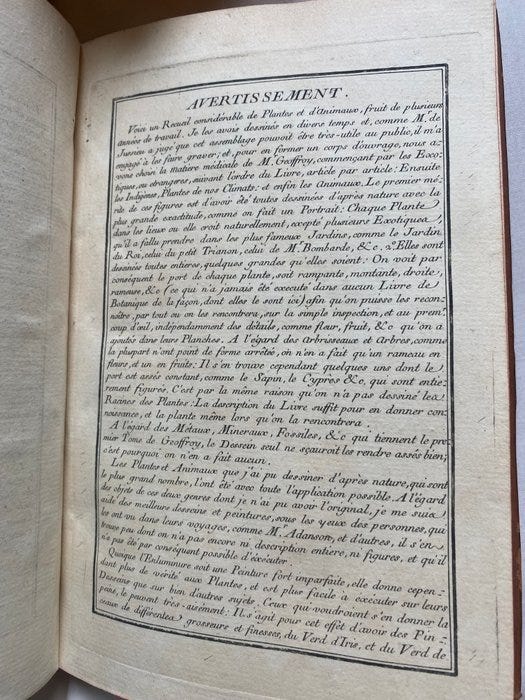 AVERTISSEMENT.
Voici un Recueil considérable de Plantes et d'Animaux, fruit de plusieurs
années de travail. Je les avois dessinés en divers temps et, comme M.r de
Jussieu a jugé que cet assemblage pouvoit être très-utile au public, il m'a
engagé à les faire graver; et, pour en former un corps d'ouvrage, nous a-
vons choisi la matiere médicale de M.r Geoffroy, commençant par les Exoti-
ques, ou etrangeres, suivant l'ordre du Livre, article par article: Ensuite
les Indigènes, Plantes de nos Climats: et enfin les Animaux. Le premier mé-
rite de ces figures est d'avoir été toutes dessinées d'après nature avec la
plus grande exactitude, comme on fait un Portrait: Chaque Plante
dans les lieux ou elle croit naturellement, excepté plusieurs Exotiques
qu'il a fallu prendre dans les plus fameux Jardins, comme le Jardin
du Roi, celui du petit Trianon, celui de M.r Bombarde, &c. 2.° Elles sont
dessinées toutes entieres, quelques grandes qu'elles soient: On voit par
conséquent le port de chaque plante, soit rampante, montante, droite,
rameuse, &c (ce qui n'a jamais été executé dans aucun Livre de
Botanique de la façon, dont elles le sont ici) afin qu'on puisse les recon-
noître, par tout ou on les rencontrera, sur la simple inspection, et au prem.r
coup d'œil, indépendamment des détails, comme fleur, fruit, &c qu'on a
ajoutés dans leurs Planches. A l'égard des Arbrisseaux et Arbres, comme
la pluspart n'ont point de forme arrêtée, on n'en a fait qu'un rameau en
fleurs, et un en fruits: Il s'en trouve cependant quelques uns dont le
port est assés constant, comme le Sapin, le Cyprès &c, qui sont entie-
rement figurés. C'est par la même raison qu'on n'a pas dessiné les
Racines des Plantes: La description du Livre suffit pour en donner con-
noissance, et la plante même lors qu'on la rencontrera.
A l'égard des Métaux, Mineraux, Fossiles, &c qui tiennent le pre-
mier Tome de Geoffroy, le Dessein seul ne sçauroit les rendre assés bien;
c'est pourquoi on n'en a fait aucun.
Les Plantes et Animaux que j'ai pu dessiner d'après nature, qui sont
le plus grand nombre, l'ont été avec toute l'application possible. A l'égard
des objets de ces deux genres dont je n'ai pu avoir l'original, je me suis
aidé des meilleurs desseins et peintures, sous les yeux des personnes, qui
les ont vu dans leurs voyages, comme M.r Adanson, et d'autres, il s'en
trouve peu dont on n'a pas encore ni description entiere, ni figures, et qu'il
n'a pas été par conséquent possible d'éxécuter.
Quoique l'Enluminure soit une Peinture fort imparfaite, elle donne cepen-
dant plus de vérité aux Plantes, et est plus facile a exécuter sur leurs
Desseins que sur bien d'autres sujets. Ceux qui voudraient s'en donner la
peine, le peuvent très-aisément: Il s'agit pour cet effêt d'avoir des Pin-
ceaux de différentes grosseurs et finesses, du Verd d'Iris, et du Verd de